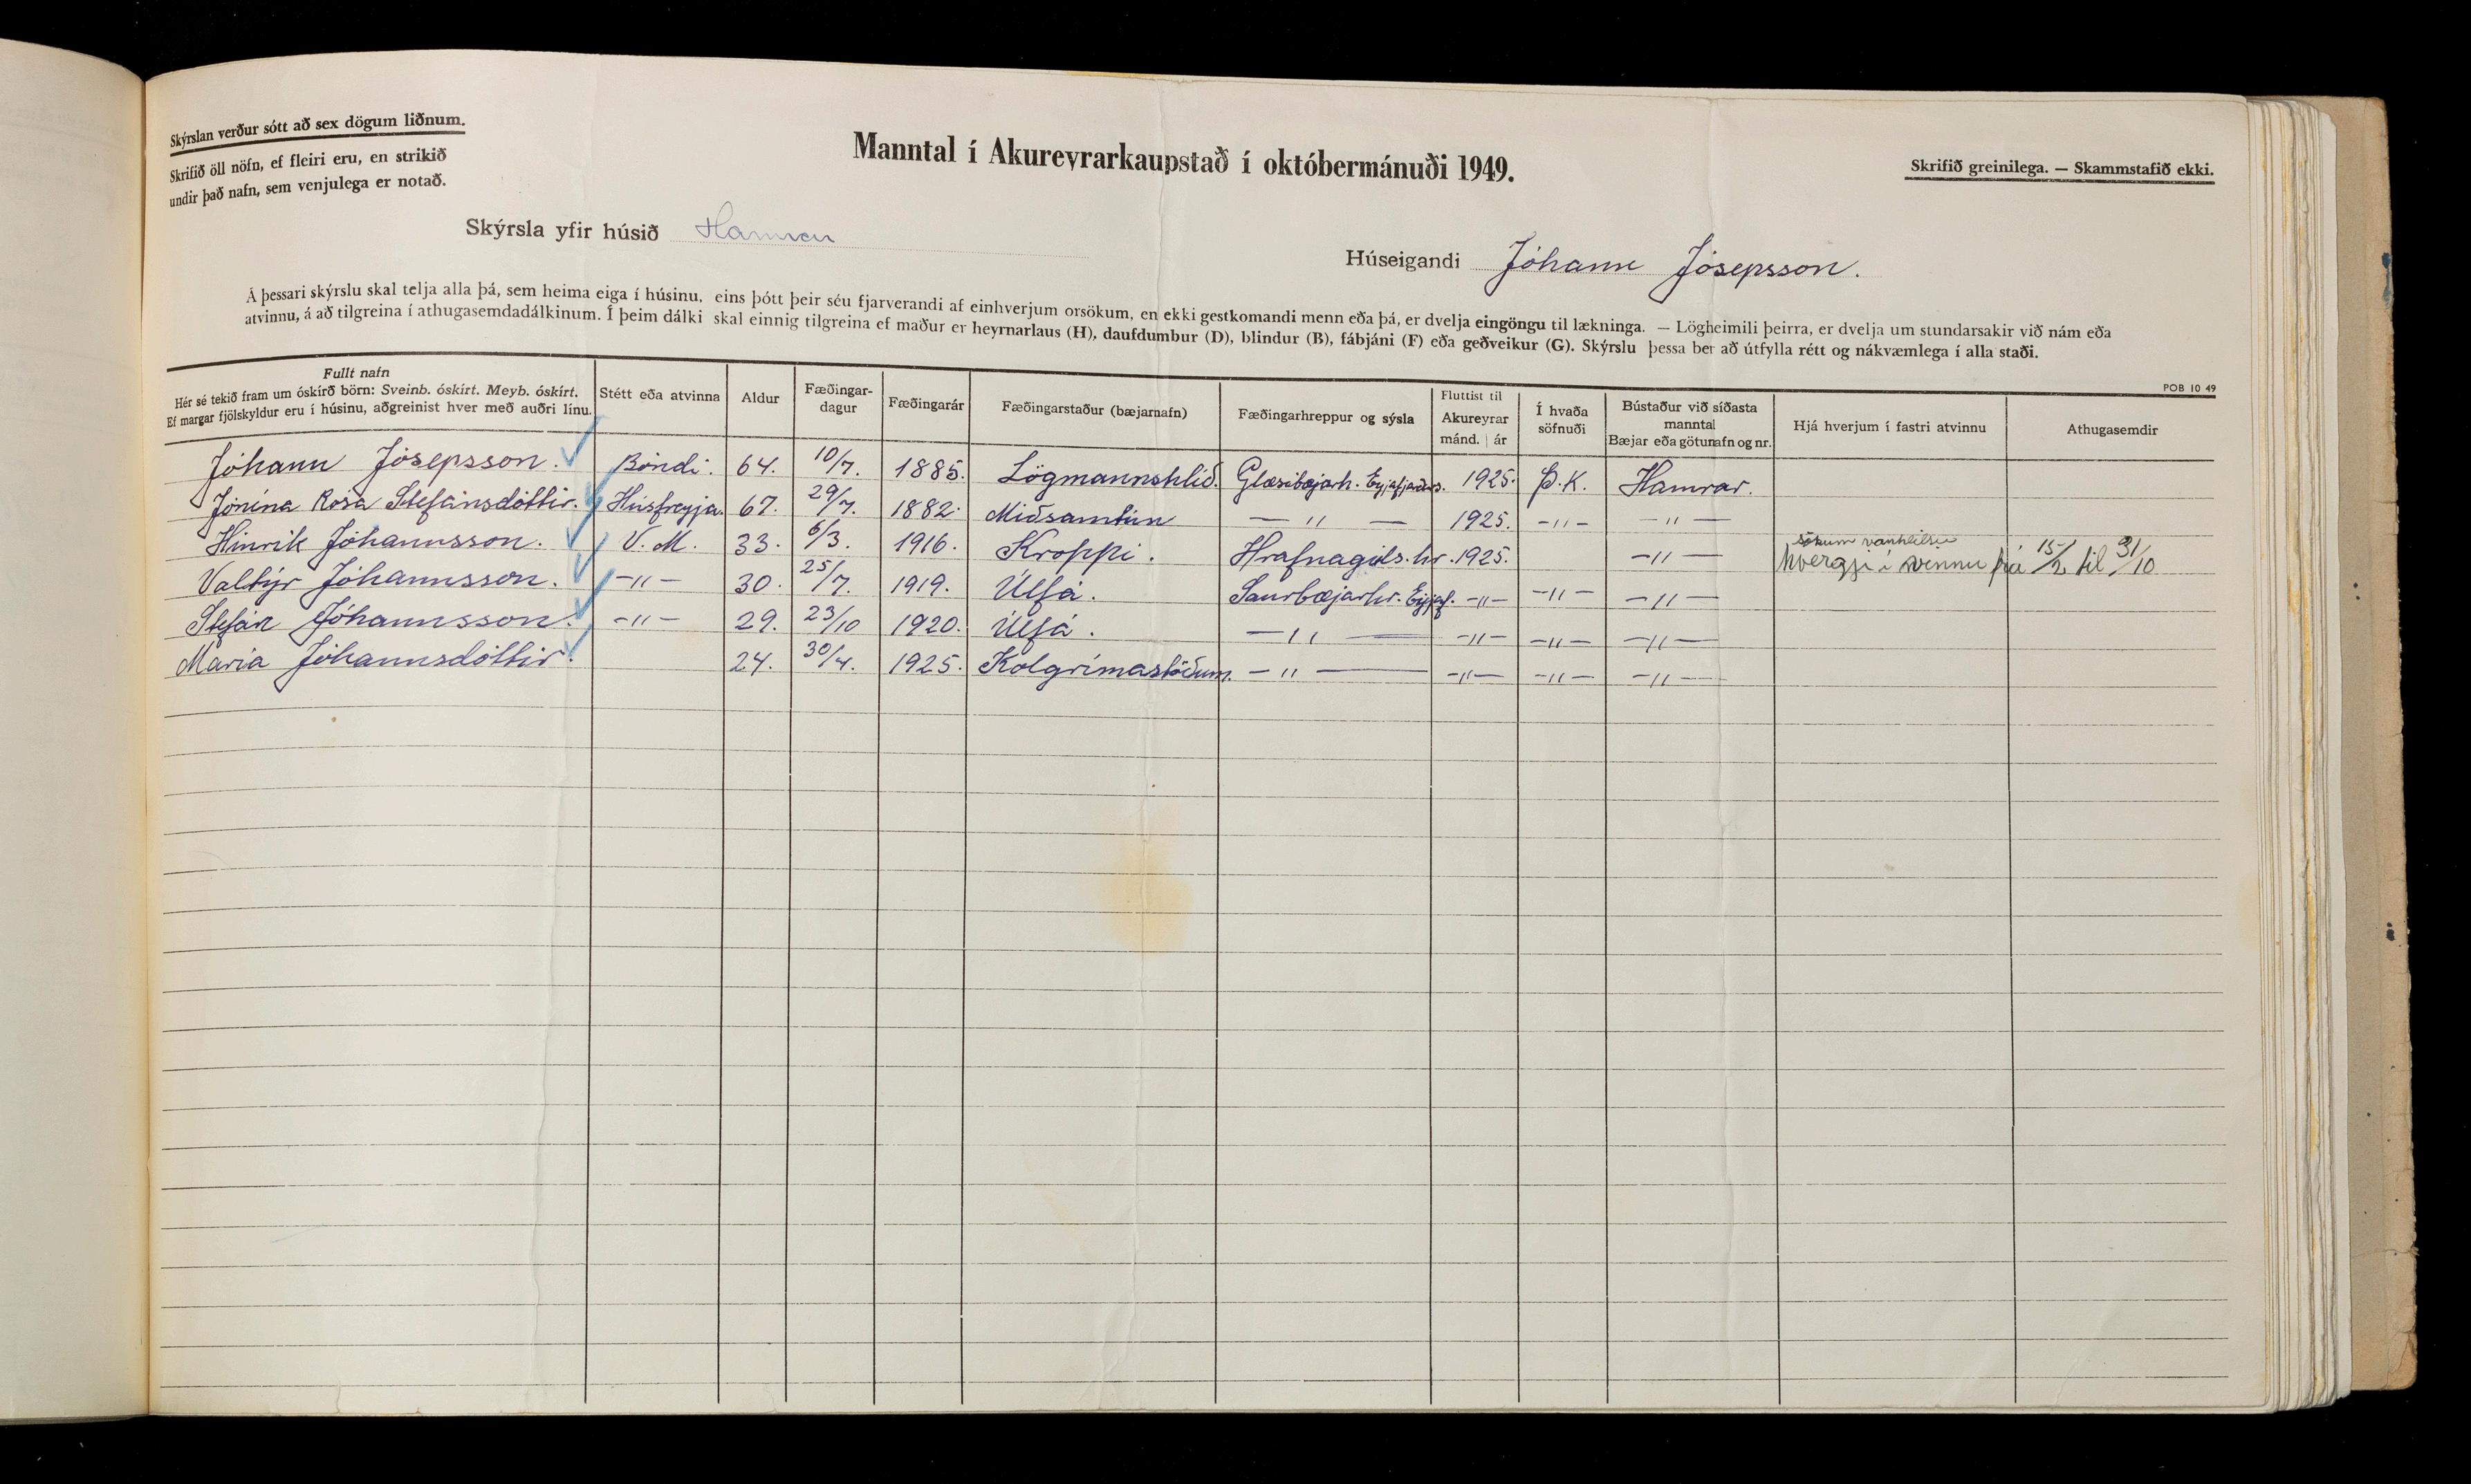 Skýrslan verður sótt að sex dögum liðnum.
Skrifið öll nöfn, ef fleiri eru, en strikið
undir það nafn, sem venjulega er notað.
Manntal í Akureyrarkaupstað í októbermánuði 1949.
Skrifið greinilega. — Skammstafið ekki.
Skýrsla yfir húsið
Húseigandi Jóhann Jósepsson.
Á þessari skýrslu skal telja alla þá, sem heima eiga í húsinu, eins þótt þeir séu fjarverandi af einhverjum orsökum, en ekki gestkomandi menn eða þá, er dvelja eingöngu til lækninga. — Lögheimili þeirra, er dvelja um stundarsakir við nám eða
atvinnu, á að tilgreina í athugasemdadálkinum. Í þeim dálki skal einnig tilgreina ef maður er heyrnarlaus (H), daufdumbur (D), blindur (B), fábjáni (F) eða geðveikur (G). Skýrslu þessa ber að útfylla rétt og nákvæmlega í alla staði.
POB 10 49
Fullt nafn
Hér sé tekið fram um óskírð börn: Sveinb. óskírt. Meyb. óskírt.
Ef margar fjölskyldur eru í húsinu, aðgreinist hver með auðri línu.
Stétt eða atvinna
Aldur
Fæðingar-
dagur
Fæðingarár
Fæðingarstaður (bæjarnafn)
Fæðingarhreppur og sýsla
Fluttist til
Akureyrar
mánd. | ár
Í hvaða
söfnuði
Bústaður við síðasta
manntal
Bæjar eða götunafn og nr.
Hjá hverjum í fastri atvinnu
Athugasemdir
Jóhann Jósepsson. Bóndi. 64. 10/7. 1885. Lögmannshlíð. Glæsibæjarh. Eyjafjarðars. 1925. Þ.K. Hamrar.
Jónína Rósa Stefánsdóttir. Húsfreyja. 67. 29/7. 1882. Miðsamtún —"— 1925. -"- —"—
Hinrik Jóhannsson. V. M. 33. 6/3. 1916. Kroppi. Hrafnagils.hr. 1925. -"— sökum vanheilsu
hvergi í vinnu frá 15/2 til 31/10
Valtýr Jóhannsson. -"- 30. 25/7. 1919. Úlfá. Saurbæjarhr. Eyjaf. -"- -"- -"—
Stefán Jóhannsson. -"- 29. 23/10 1920. Úlfá. —"— -"- -"- -"—
María Jóhannsdóttir. 24. 30/4. 1925. Kolgrímastöðum. -"— -"- -"- -"—